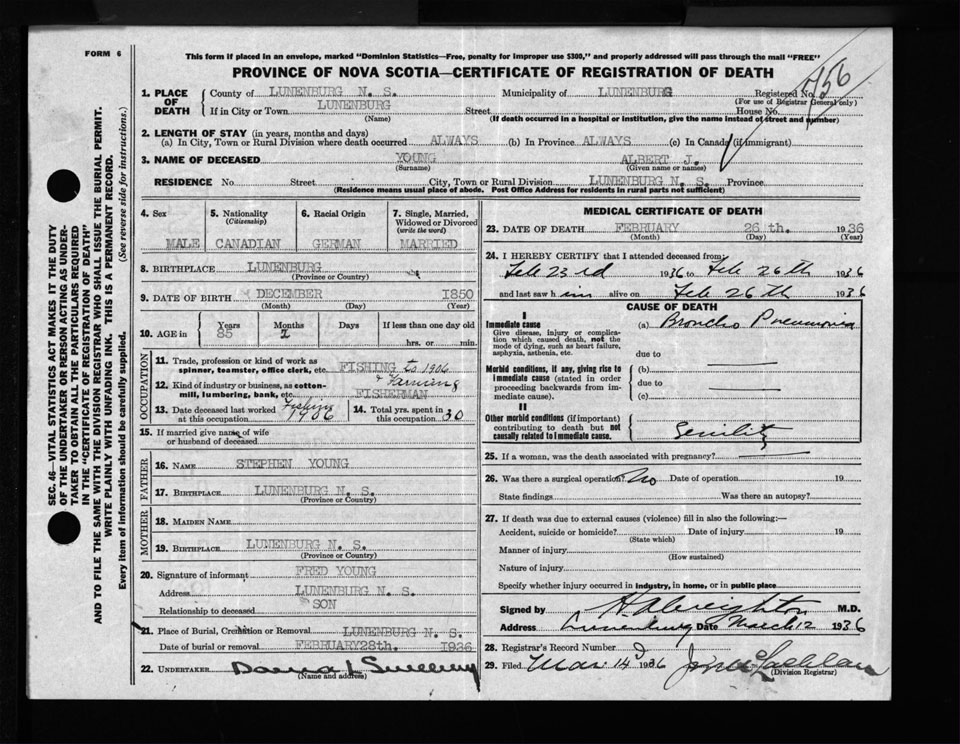 FORM 6
This form if placed in an envelope, marked "Dominion Statistics—Free, penalty for improper use $300," and properly addressed will pass through the mail "FREE"
PROVINCE OF NOVA SCOTIA—CERTIFICATE OF REGISTRATION OF DEATH
1. PLACE OF DEATH County of LUNENBURG N. S. Municipality of LUNENBURG Registered No. 456
(For use of Registrar General only)
If in City or Town LUNENBURG Street House No.
(Name) (If death occurred in a hospital or institution, give the name instead of street and number)
2. LENGTH OF STAY (in years, months and days)
(a) In City, Town or Rural Division where death occurred ALWAYS (b) In Province ALWAYS (c) In Canada (if immigrant)
3. NAME OF DECEASED YOUNG ALBERT J.
(Surname) (Given name or names)
RESIDENCE No Street City, Town or Rural Division LUNENBURG N. S. Province
(Residence means usual place of abode. Post Office Address for residents in rural parts not sufficient)
4. Sex 5. Nationality (Citizenship) 6. Racial Origin 7. Single, Married, Widowed or Divorced (write the word)
MALE CANADIAN GERMAN MARRIED
8. BIRTHPLACE LUNENBURG
(Province or Country)
9. DATE OF BIRTH DECEMBER 1850
(Month) (Day) (Year)
10. AGE in Years Months Days If less than one day old
85 2 hrs. or min.
OCCUPATION
11. Trade, profession or kind of work as spinner, teamster, office clerk, etc. FISHING to 1906
& Farming
12. Kind of industry or business, as cotton-mill, lumbering, bank, etc. FISHERMAN
13. Date deceased last worked at this occupation Fishing 1906
14. Total yrs. spent in this occupation 30
15. If married give name of wife or husband of deceased
FATHER
16. NAME STEPHEN YOUNG
17. BIRTHPLACE LUNENBURG N. S.
(Province or Country)
MOTHER
18. MAIDEN NAME
19. BIRTHPLACE LUNENBURG N. S.
(Province or Country)
20. Signature of informant FRED YOUNG
Address LUNENBURG N. S.
Relationship to deceased SON
21. Place of Burial, Cremation or Removal LUNENBURG N. S.
Date of burial or removal FEBRUARY 28th. 1936
22. UNDERTAKER
(Name and address)
MEDICAL CERTIFICATE OF DEATH
23. DATE OF DEATH FEBRUARY 26 th. 1936
(Month) (Day) (Year)
24. I HEREBY CERTIFY that I attended deceased from:
Feb 23rd 1936 to Feb 26th 1936
and last saw h im alive on Feb 26th 1936
CAUSE OF DEATH
I
Immediate cause (a) Broncho Pneumonia
Give disease, injury or complication which caused death, not the mode of dying, such as heart failure, asphyxia, asthenia, etc.
due to
Morbid conditions, if any, giving rise to immediate cause (stated in order proceeding backwards from immediate cause). (b)
due to
(c)
II
Other morbid conditions (if important) contributing to death but not causally related to immediate cause. Senility
25. If a woman, was the death associated with pregnancy?
26. Was there a surgical operation? No Date of operation 19
State findings Was there an autopsy?
27. If death was due to external causes (violence) fill in also the following:—
Accident, suicide or homicide? Date of injury 19
(State which)
Manner of injury
(How sustained)
Nature of injury
Specify whether injury occurred in industry, in home, or in public place
Signed by H A Creighton M.D.
Address Lunenburg Date March 12 1936
28. Registrar's Record Number
29. Filed Mar 14 1936
(Division Registrar)
SEC. 46—VITAL STATISTICS ACT MAKES IT THE DUTY
OF THE UNDERTAKER OR PERSON ACTING AS UNDER-
TAKER TO OBTAIN ALL THE PARTICULARS REQUIRED
IN THE "CERTIFICATE OF REGISTRATION OF DEATH"
AND TO FILE THE SAME WITH THE DIVISION REGISTRAR WHO SHALL ISSUE THE BURIAL PERMIT.
WRITE PLAINLY WITH UNFADING INK. THIS IS A PERMANENT RECORD.
Every item of information should be carefully supplied. (See reverse side for instructions.)